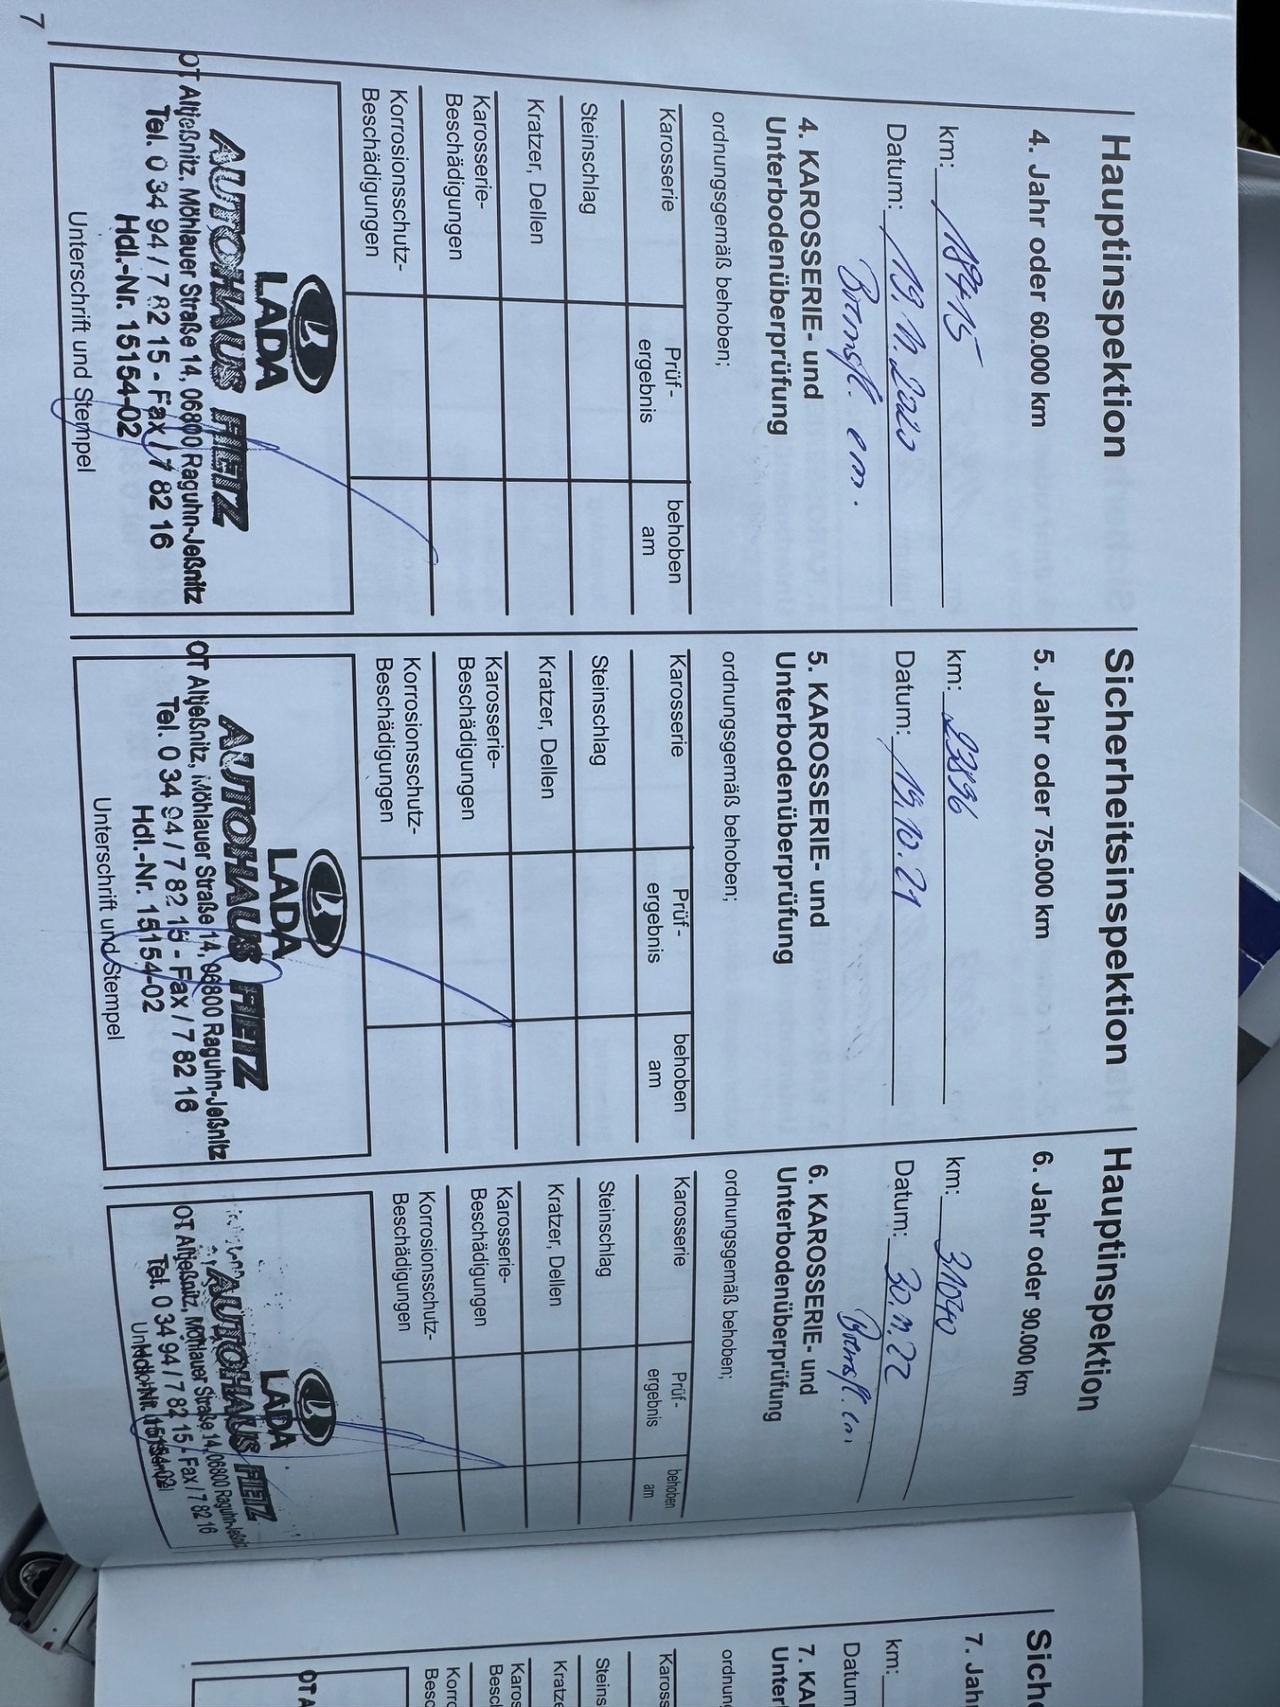 Hauptinspektion
4. Jahr oder 60.000 km
km: 18415
Datum: 19.11.2020
Bremsfl. ern.
4. KAROSSERIE- und
Unterbodenüberprüfung
ordnungsgemäß behoben;
Karosserie Prüf-ergebnis behoben am
Steinschlag
Kratzer, Dellen
Karosserie-
Beschädigungen
Korrosionsschutz-
Beschädigungen
LADA
AUTOHAUS HETZ
OT Altjeßnitz. Möhlauer Straße 14, 06800 Raguhn-Jeßnitz
Tel. 0 34 94 / 7 82 15 - Fax / 7 82 16
Hdl.-Nr. 15154-02
Unterschrift und Stempel
7
Sicherheitsinspektion
5. Jahr oder 75.000 km
km: 23896
Datum: 19.10.21
5. KAROSSERIE- und
Unterbodenüberprüfung
ordnungsgemäß behoben;
Karosserie Prüf-ergebnis behoben am
Steinschlag
Kratzer, Dellen
Karosserie-
Beschädigungen
Korrosionsschutz-
Beschädigungen
LADA
AUTOHAUS HETZ
OT Altjeßnitz, Möhlauer Straße 14, 06800 Raguhn-Jeßnitz
Tel. 0 34 94 / 7 82 15 - Fax / 7 82 16
Hdl.-Nr. 15154-02
Unterschrift und Stempel
Hauptinspektion
6. Jahr oder 90.000 km
km: 31040
Datum: 30.11.22
Bremsfl. ern
6. KAROSSERIE- und
Unterbodenüberprüfung
ordnungsgemäß behoben;
Karosserie Prüf-ergebnis behoben am
Steinschlag
Kratzer, Dellen
Karosserie-
Beschädigungen
Korrosionsschutz-
Beschädigungen
LADA
AUTOHAUS HETZ
OT Altjeßnitz, Möhlauer Straße 14, 06800 Raguhn-Jeßnitz
Tel. 0 34 94 / 7 82 15 - Fax / 7 82 16
Siche
7. Jah
km:
Datum
7. KAR
Unter
ordnun
Kaross
Steins
Kratze
Karos
Besc
Korro
Besc
OT A